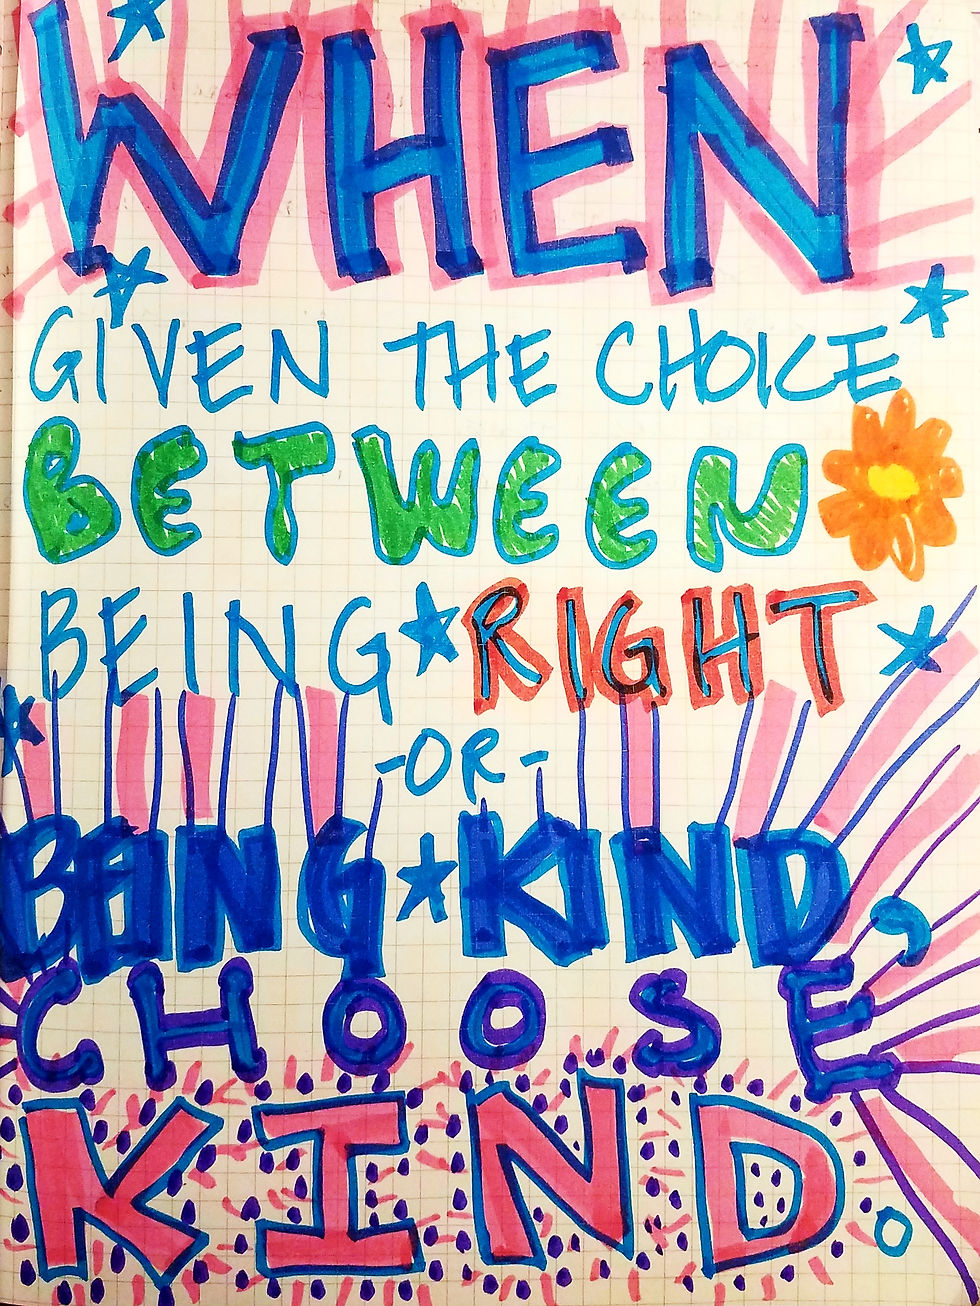 WHEN
GIVEN THE CHOICE
BETWEEN
BEING RIGHT
-OR-
BEING KIND,
CHOOSE
KIND.